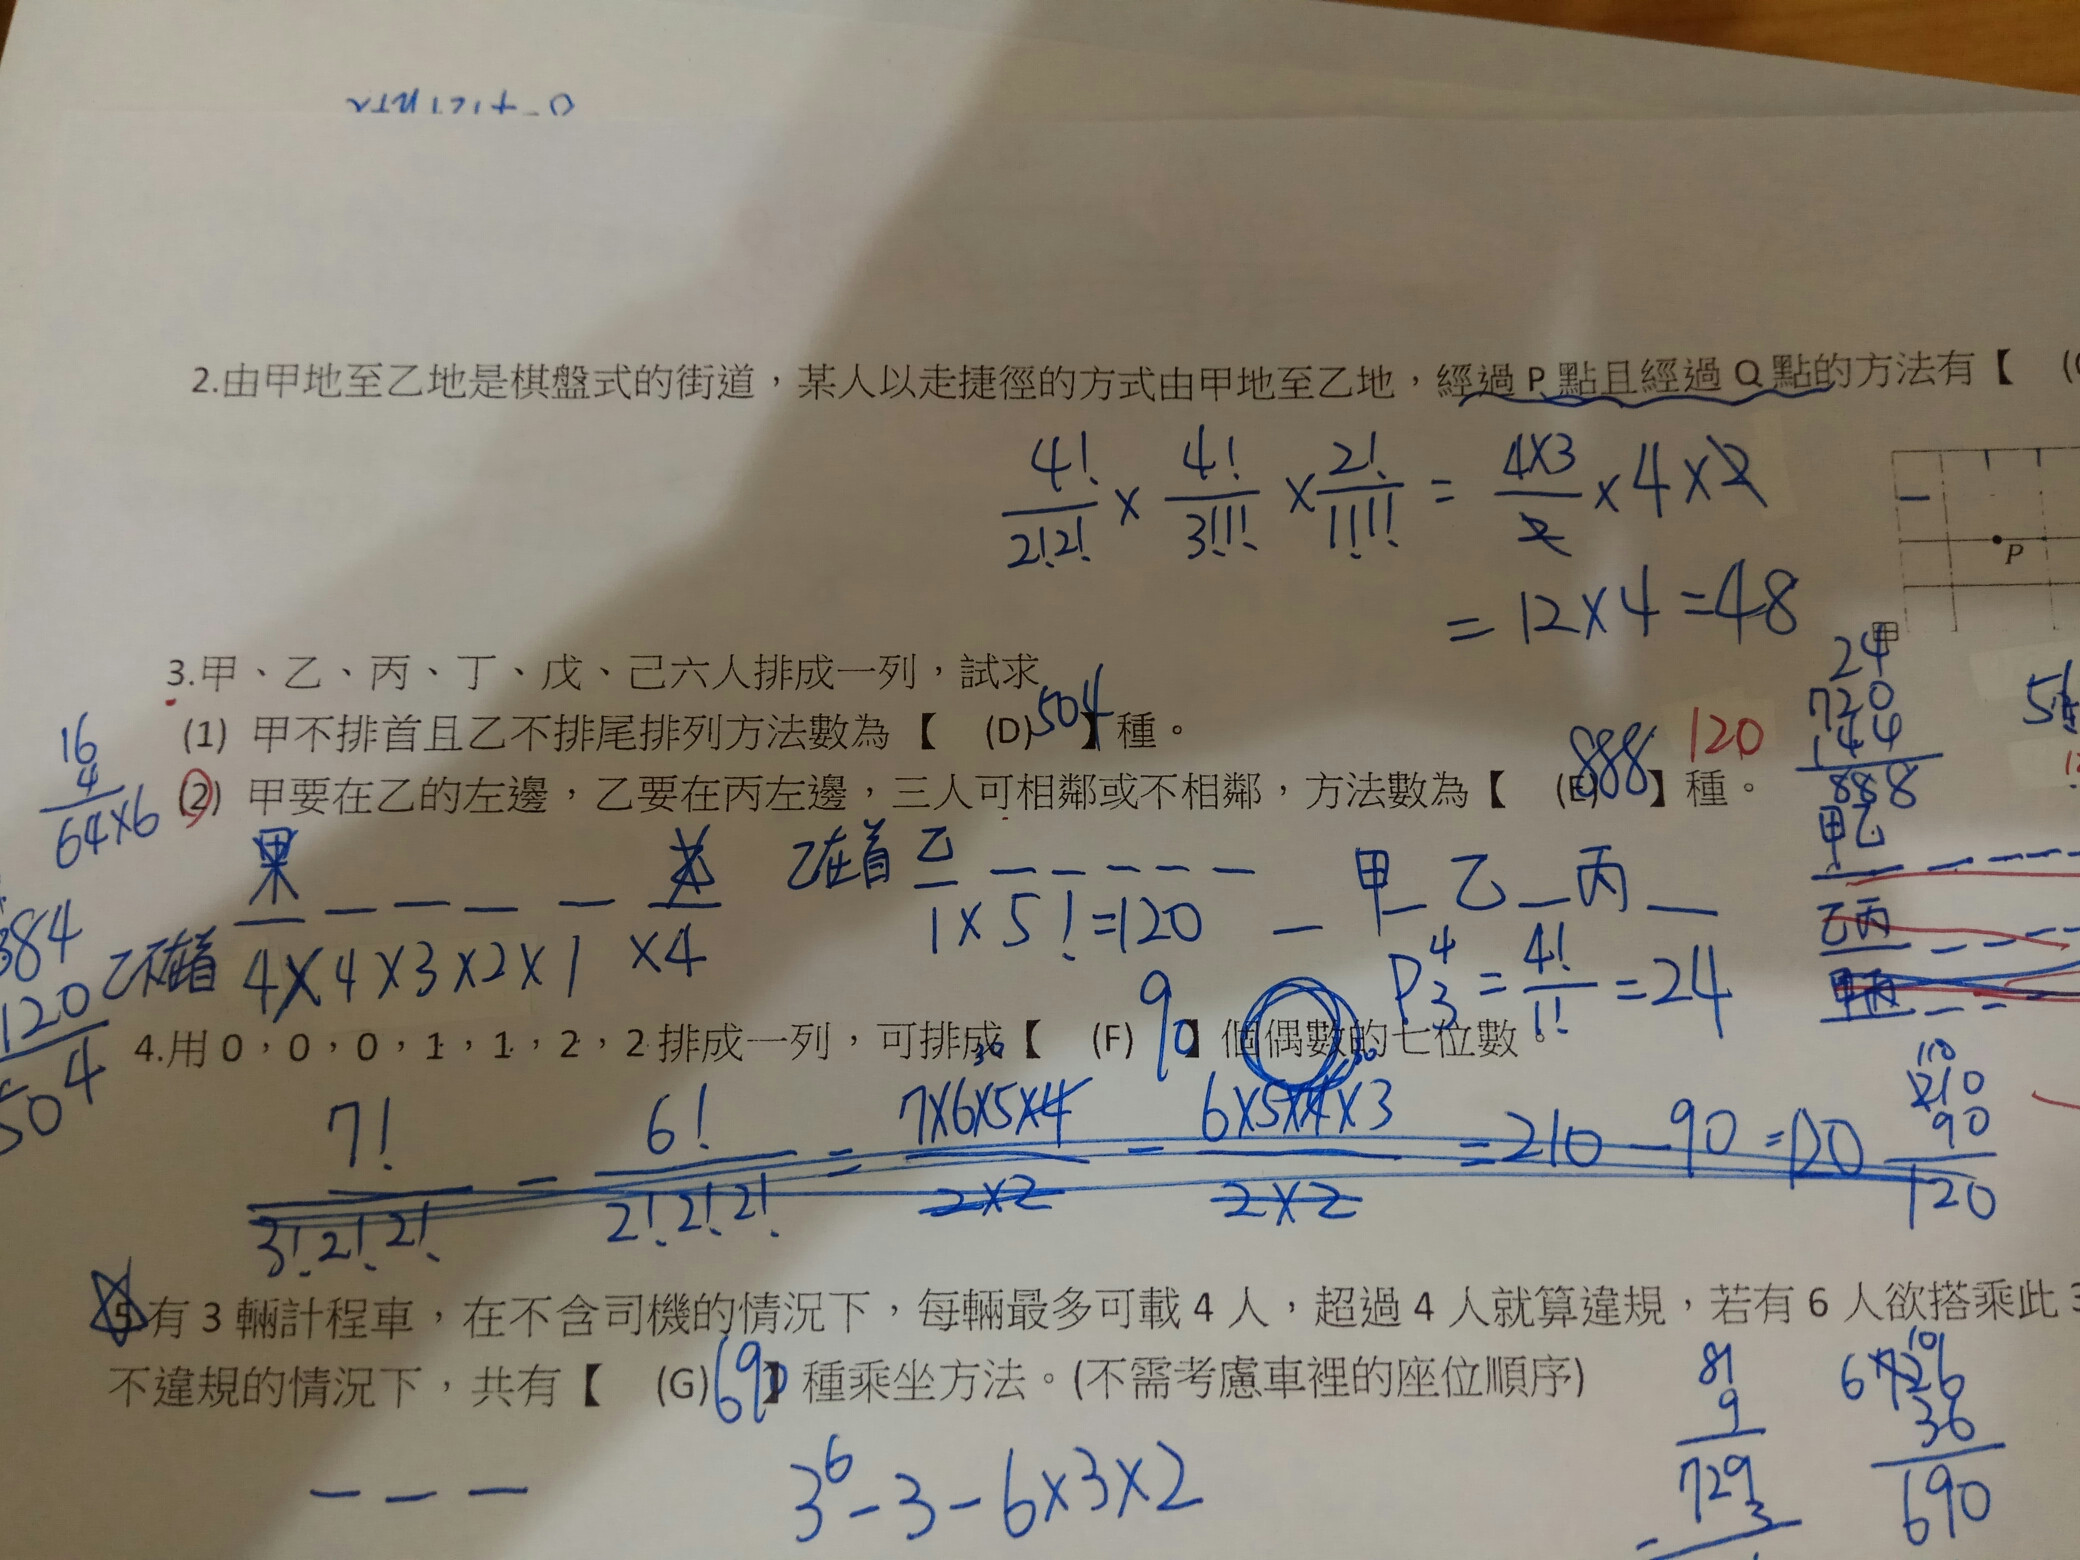 2.由甲地至乙地是棋盤式的街道，某人以走捷徑的方式由甲地至乙地，經過 P 點且經過 Q 點的方法有【
4!/2!2! × 4!/3!1! × 2!/1!1! = 4×3/2 × 4 × 2
= 12×4 = 48
P
甲
3.甲、乙、丙、丁、戊、己六人排成一列，試求
(1) 甲不排首且乙不排尾排列方法數為【 (D) 504 】種。
(2) 甲要在乙的左邊，乙要在丙左邊，三人可相鄰或不相鄰，方法數為【 (E) 888 】種。
120
24
720
144
888
甲乙
乙丙
甲丙
16
4
64×6
384
120
504
乙不在首 4×4×3×2×1×4
乙在首 乙
1×5!=120
甲_乙_丙_
P⁴₃ = 4!/1! = 24
4.用 0，0，0，1，1，2，2 排成一列，可排成【 (F) 90 】個偶數的七位數。
7!/3!2!2! - 6!/2!2!2! = 7×6×5×4/2×2 - 6×5×4×3/2×2 = 210 - 90 = 120
210
90
120
5.有 3 輛計程車，在不含司機的情況下，每輛最多可載 4 人，超過 4 人就算違規，若有 6 人欲搭乘此 3
不違規的情況下，共有【 (G) 690 】種乘坐方法。(不需考慮車裡的座位順序)
3⁶-3-6×3×2
81
9
729
3
726
36
690